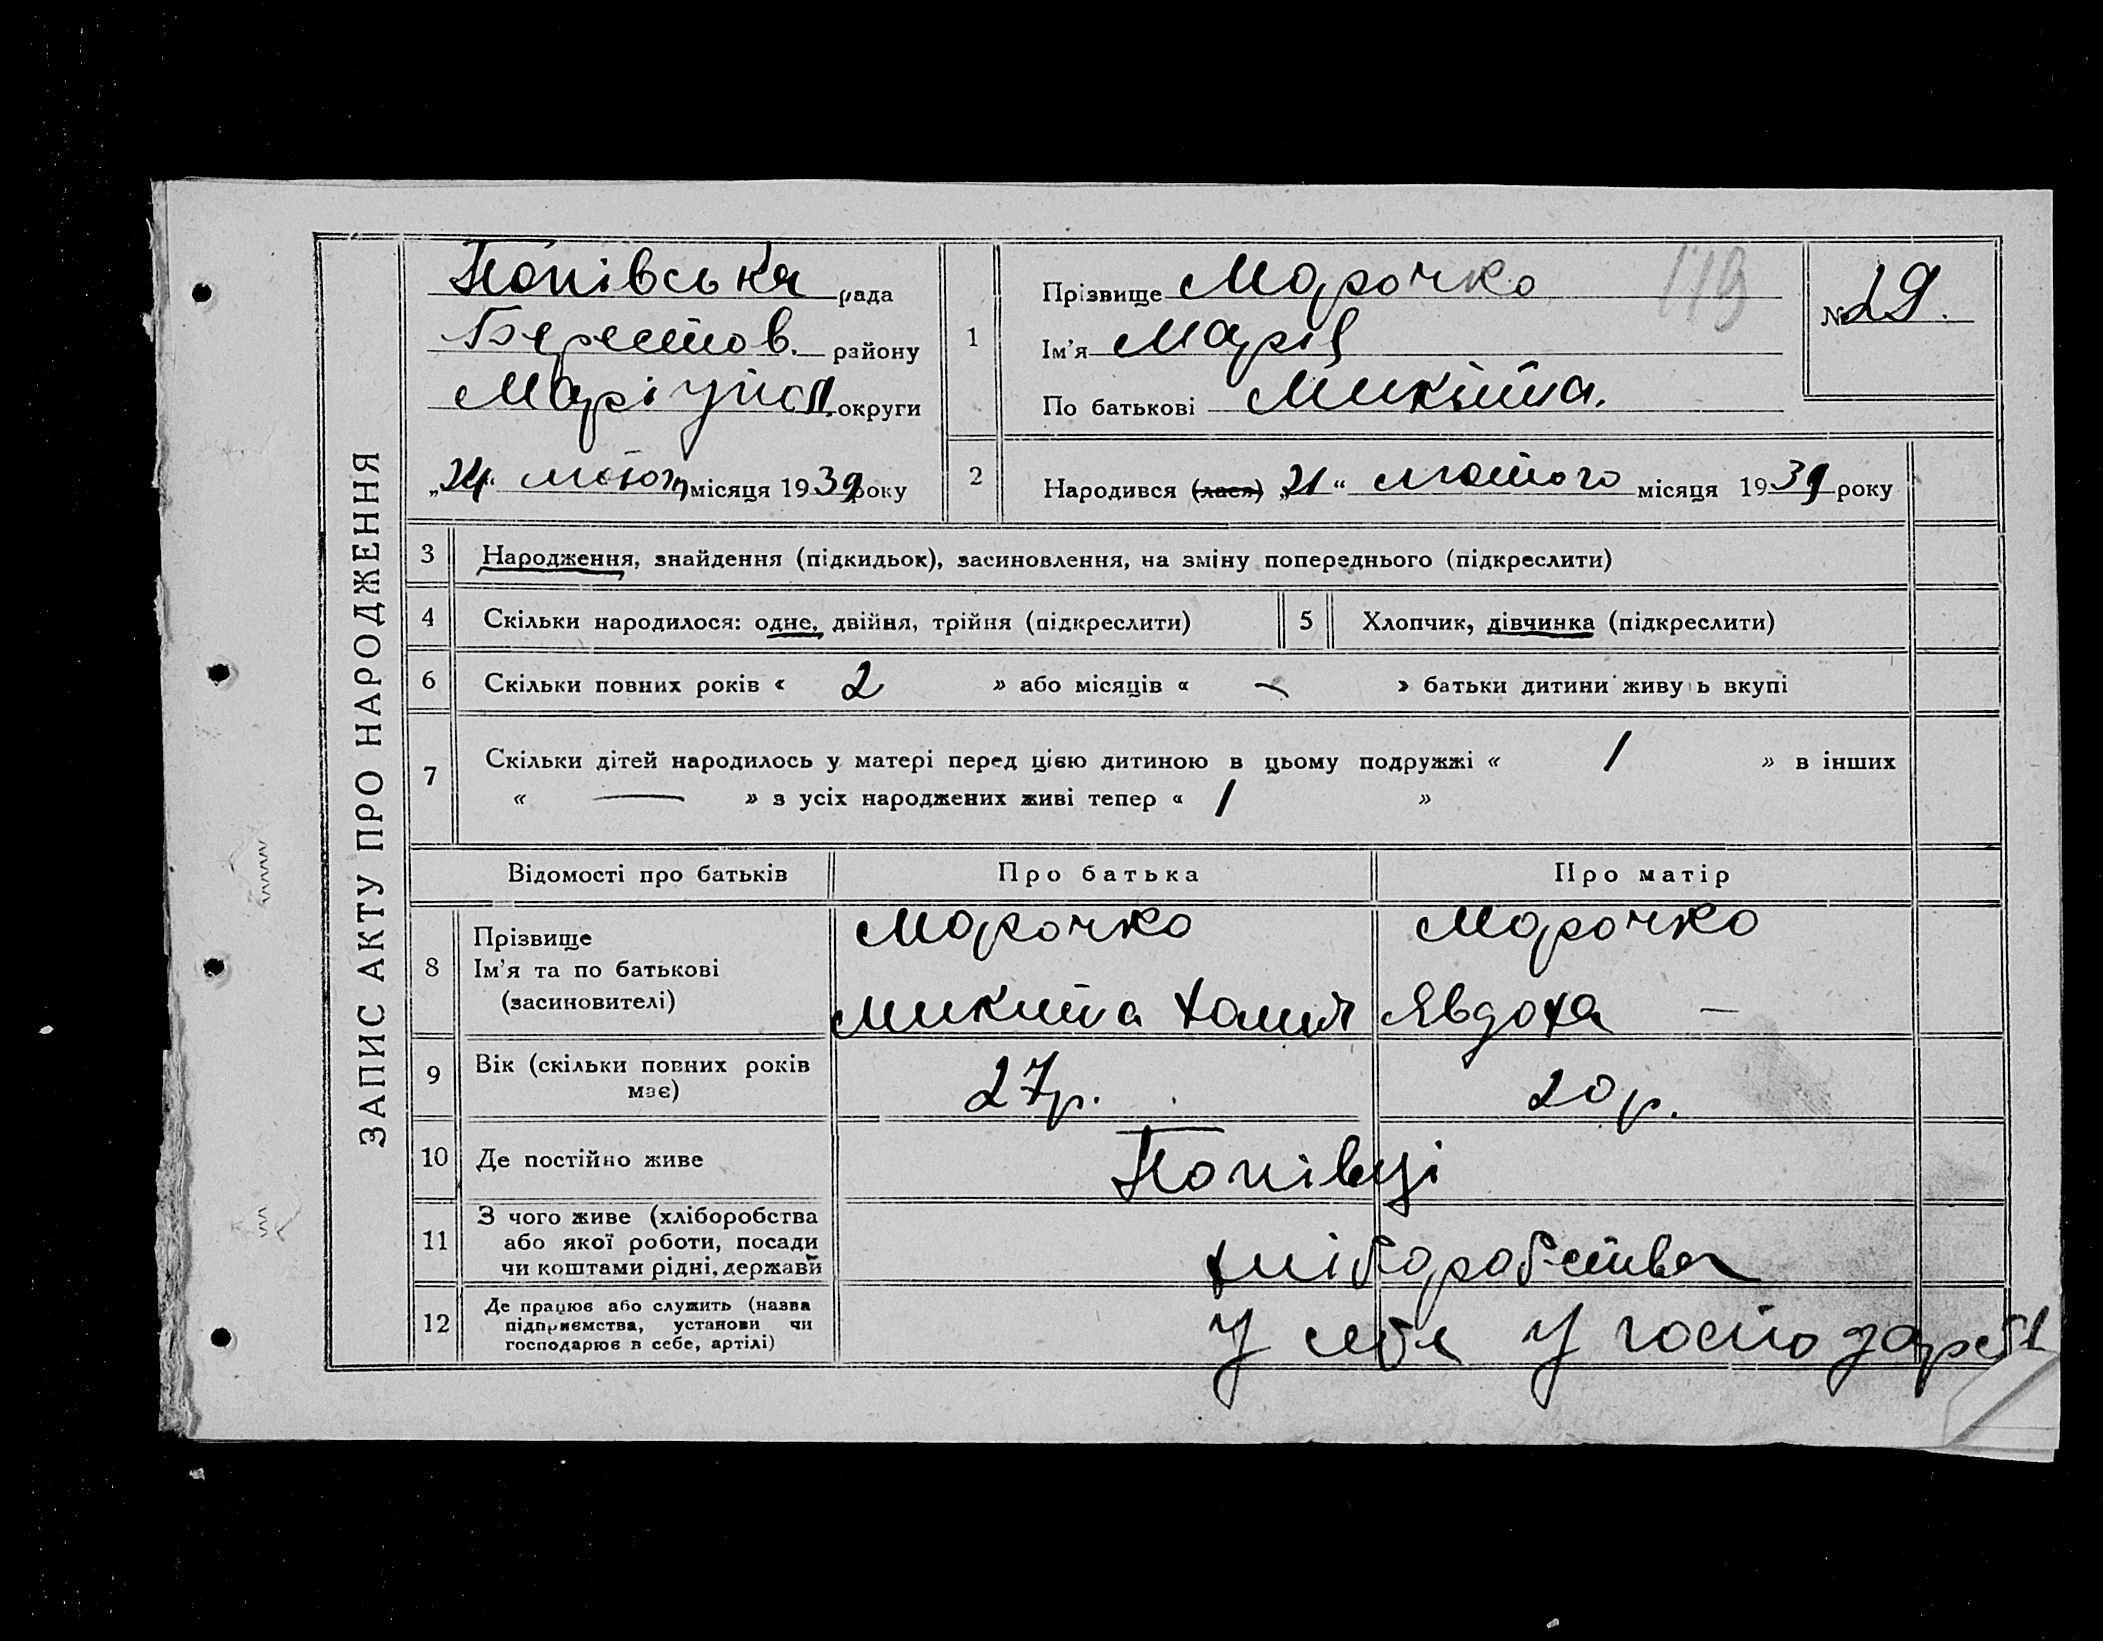 ЗАПИС АКТУ ПРО НАРОДЖЕННЯ
Попівська рада
Берестов. району
Маріуп. округи
„24“ лютого місяця 1939 року
1
Прізвище Марочко
119
Ім'я Марія
По батькові Микита.
№ 29.
2
Народився (лася) „21“ лютого місяця 1939 року
3 Народження, знайдення (підкидьок), засиновлення, на зміну попереднього (підкреслити)
4 Скільки народилося: одне, двійня, трійня (підкреслити) 5 Хлопчик, дівчинка (підкреслити)
6 Скільки повних років « 2 » або місяців « — » батьки дитини живуть вкупі
7 Скільки дітей народилось у матері перед цією дитиною в цьому подружжі « 1 » в інших
« — » з усіх народжених живі тепер « 1 »
Відомості про батьків Про батька Про матір
8 Прізвище
Ім'я та по батькові
(засиновителі)
Марочко Марочко
Микита Явдоха —
9 Вік (скільки повних років
має)
27р. 20р.
10 Де постійно живе Попівці
11 З чого живе (хліборобства
або якої роботи, посади
чи коштами рідні, держави
хліборобства
12 Де працює або служить (назва
підприємства, установи чи
господарює в себе, артілі)
У себе у господарстві